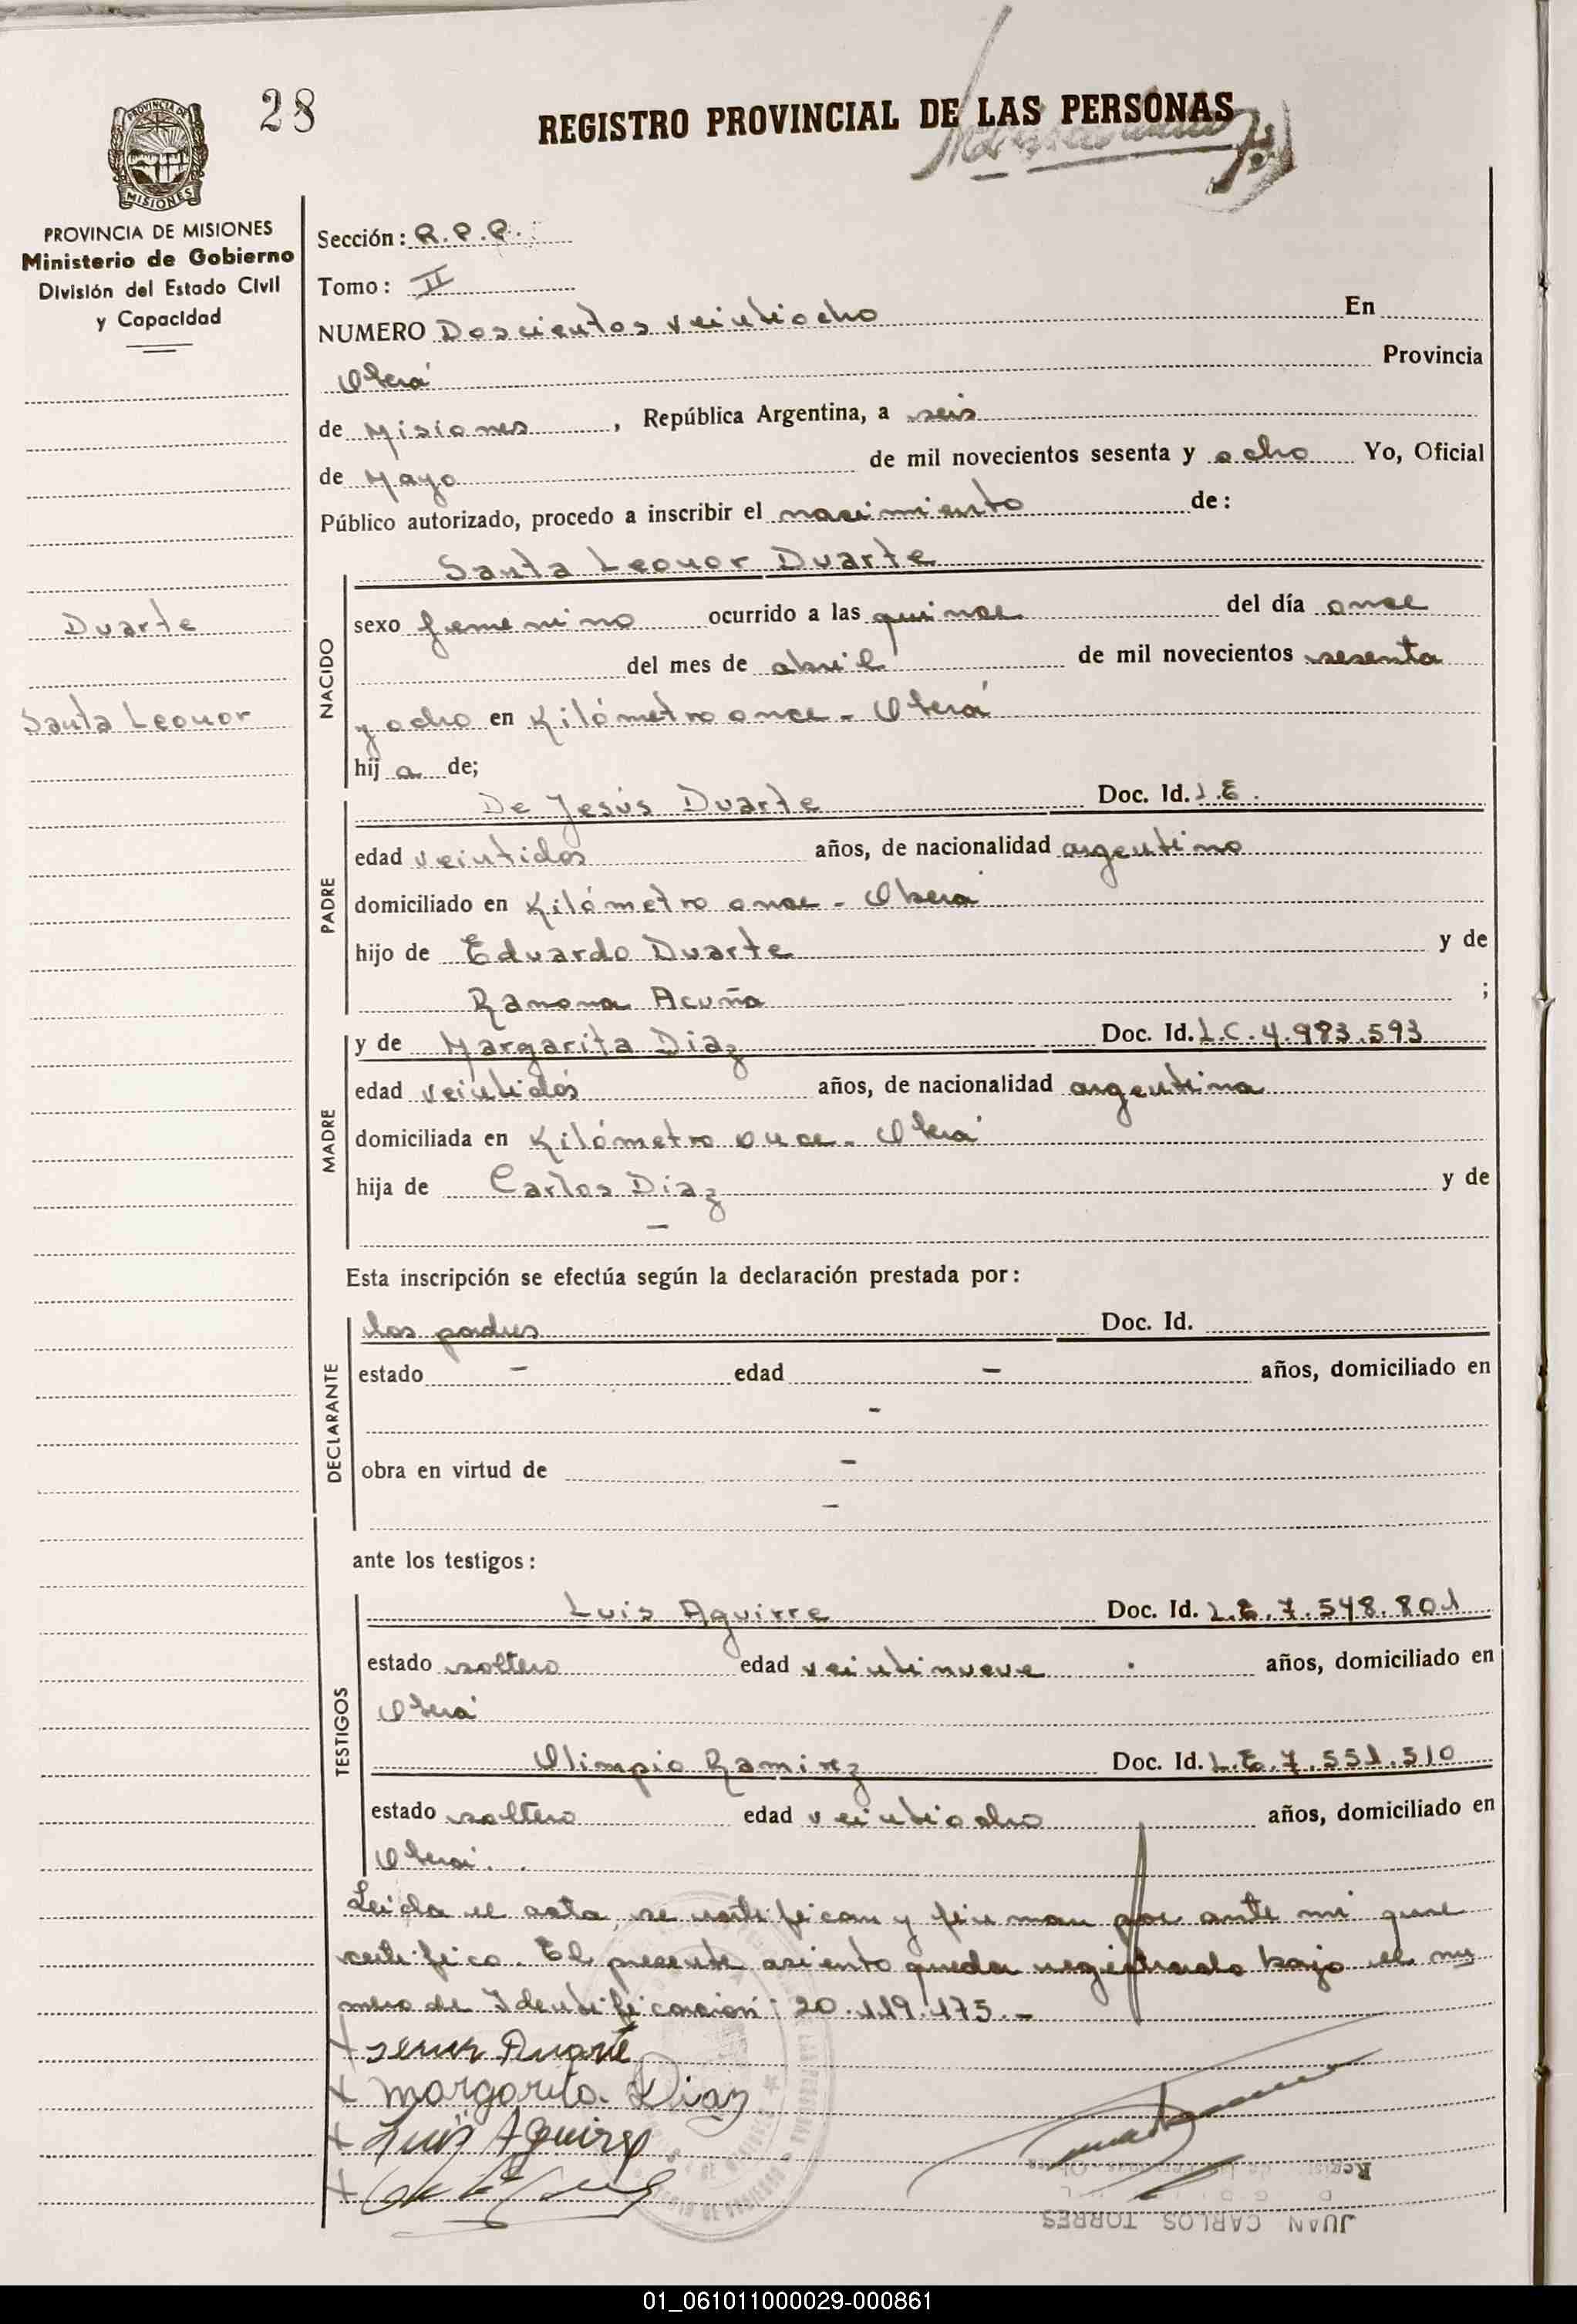 28
REGISTRO PROVINCIAL DE LAS PERSONAS
MISIONES
PROVINCIA DE MISIONES
Ministerio de Gobierno
División del Estado Civil
y Capacidad
Sección: R.P.P.
Tomo: II
NUMERO Doscientos veintiocho En
Oberá Provincia
de Misiones, República Argentina, a seis
de Mayo de mil novecientos sesenta y ocho Yo, Oficial
Público autorizado, procedo a inscribir el nacimiento de:
Duarte
Santa Leonor
NACIDO
Santa Leonor Duarte
sexo femenino ocurrido a las quince del día once
del mes de abril de mil novecientos sesenta
y ocho en Kilómetro once - Oberá
hij a de;
PADRE
De Jesús Duarte Doc. Id. L.E.
edad veintidos años, de nacionalidad argentino
domiciliado en Kilómetro once - Oberá
hijo de Eduardo Duarte y de
Ramona Acuña ;
MADRE
y de Margarita Diaz Doc. Id. L.C. 4.983.593
edad veintidós años, de nacionalidad argentina
domiciliada en Kilómetro once - Oberá
hija de Carlos Diaz y de
-
Esta inscripción se efectúa según la declaración prestada por:
DECLARANTE
los padres Doc. Id.
estado - edad - años, domiciliado en
-
obra en virtud de -
-
ante los testigos:
TESTIGOS
Luis Aguirre Doc. Id. L.E. 7.548.801
estado soltero edad veintinueve años, domiciliado en
Oberá
Olimpio Ramirez Doc. Id. L.E. 7.551.510
estado soltero edad veintiocho años, domiciliado en
Oberá.
Leida el acta, se ratifican y firman por ante mi que
certifico. El presente asiento queda registrado bajo el nu
mero de Identificación: 20.119.175.-
x Duarte
x Margarita Diaz
x Luis Aguirre
x
JUAN CARLOS TORRES
01_061011000029-000861